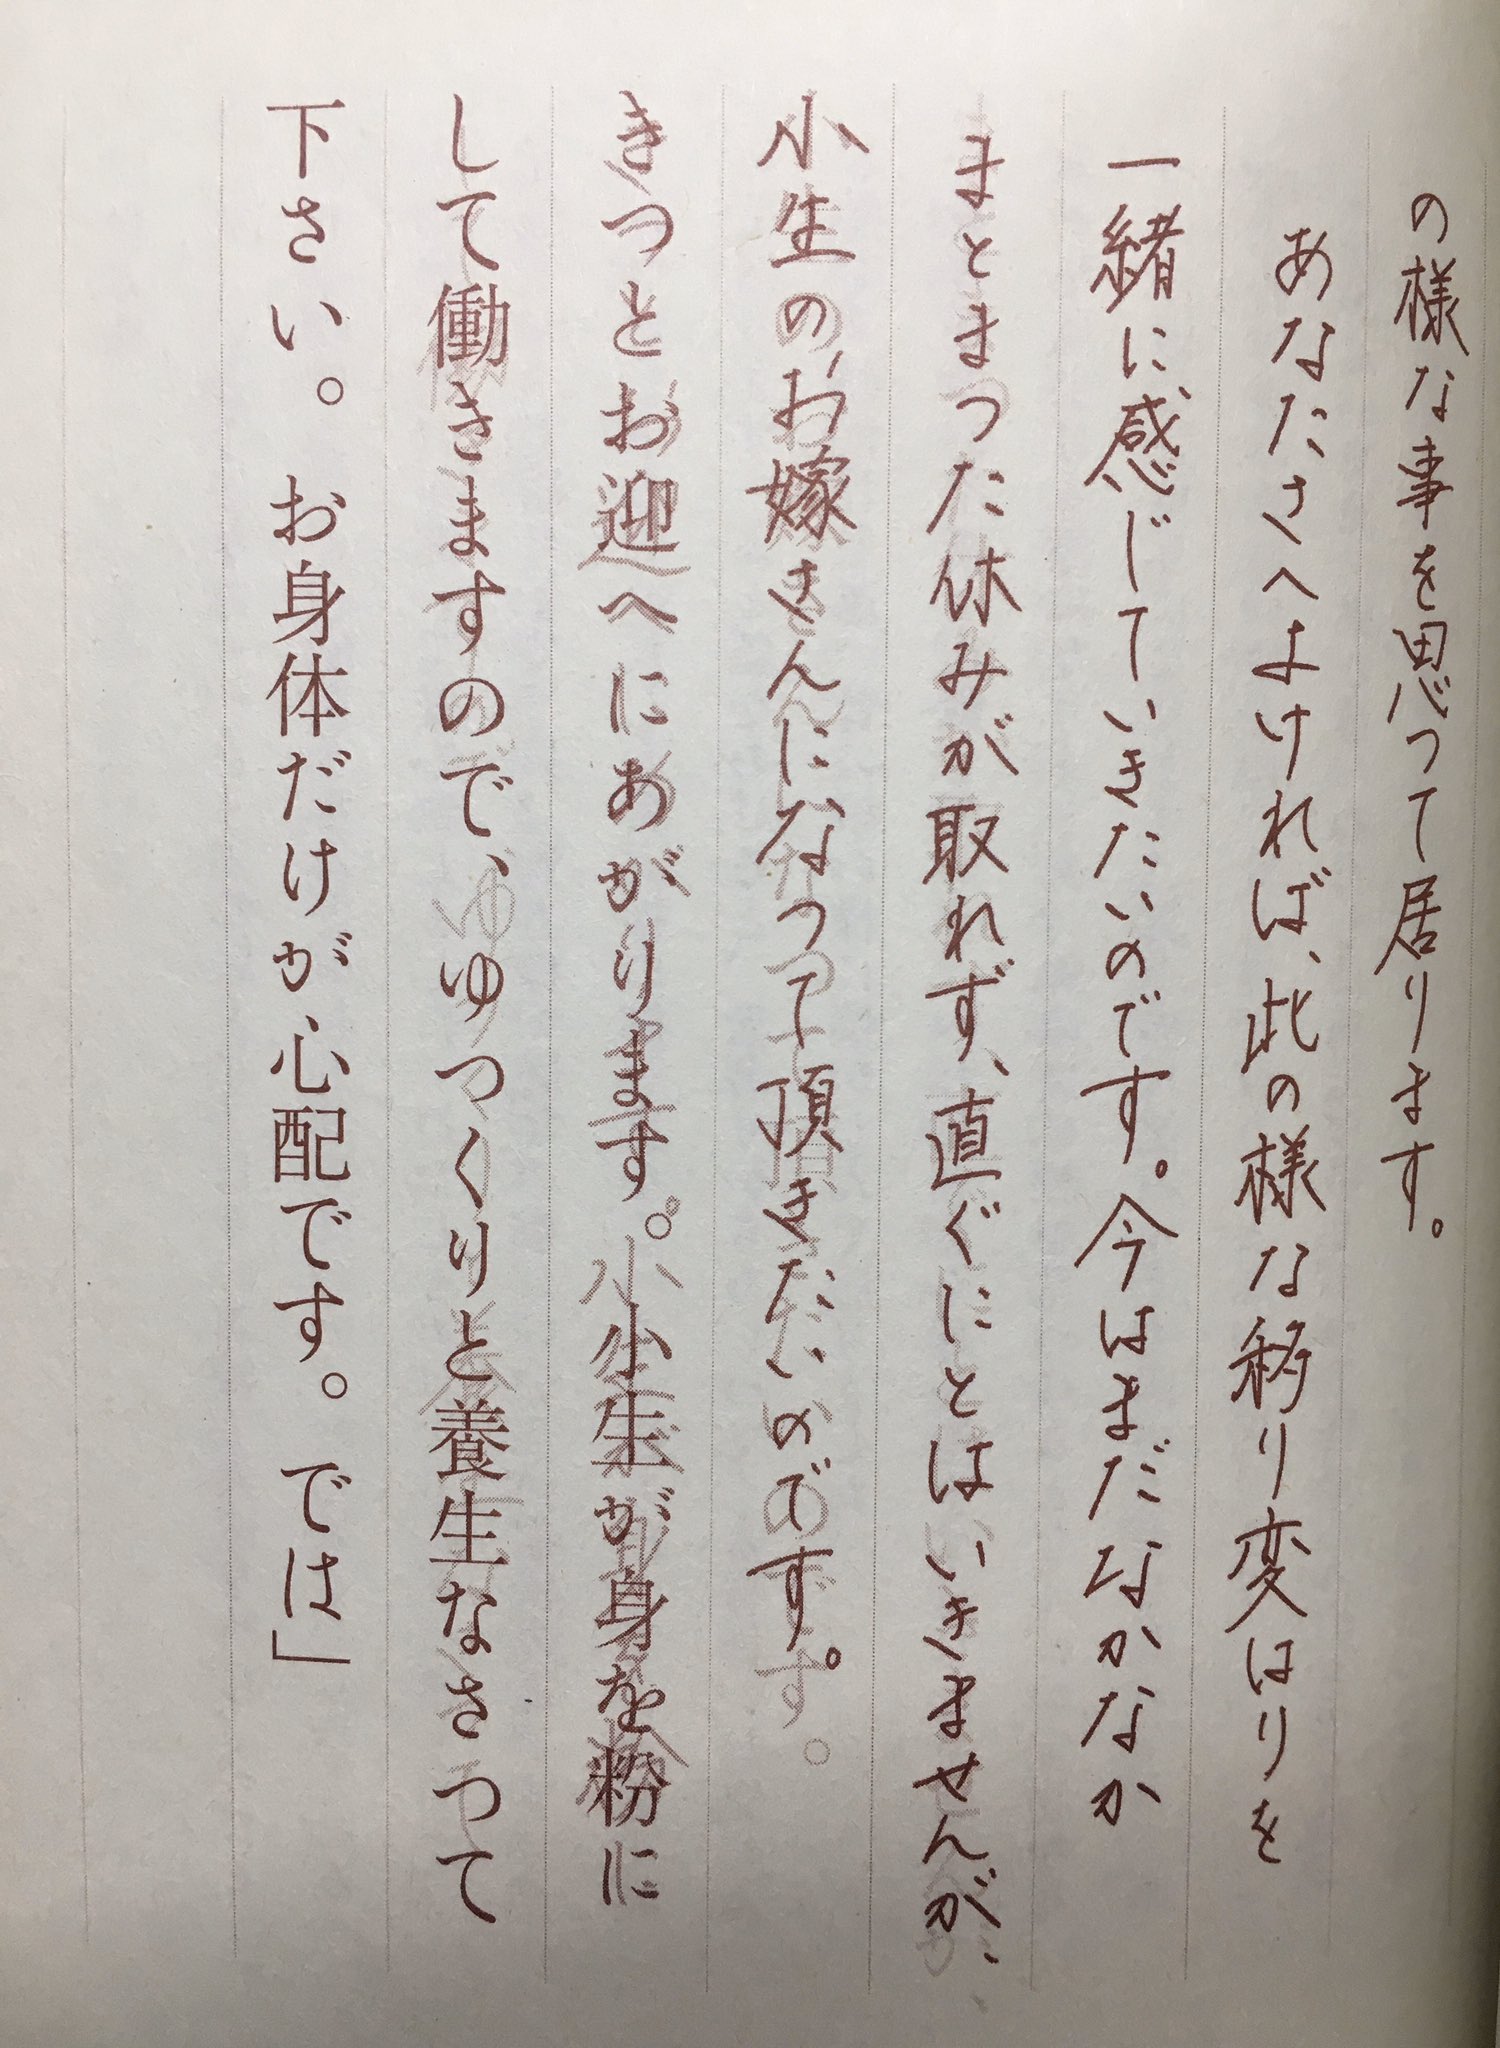 の様な事を思つて居ります。
あなたさへよければ、此の様な移り変はりを
一緒に感じていきたいのです。今はまだなかなか
まとまつた休みが取れず、直ぐにとはいきませんが、
小生のお嫁さんになつて頂きたいのです。
きつとお迎へにあがります。小生が身を粉に
して働きますので、ゆつくりと養生なさつて
下さい。お身体だけが心配です。では」